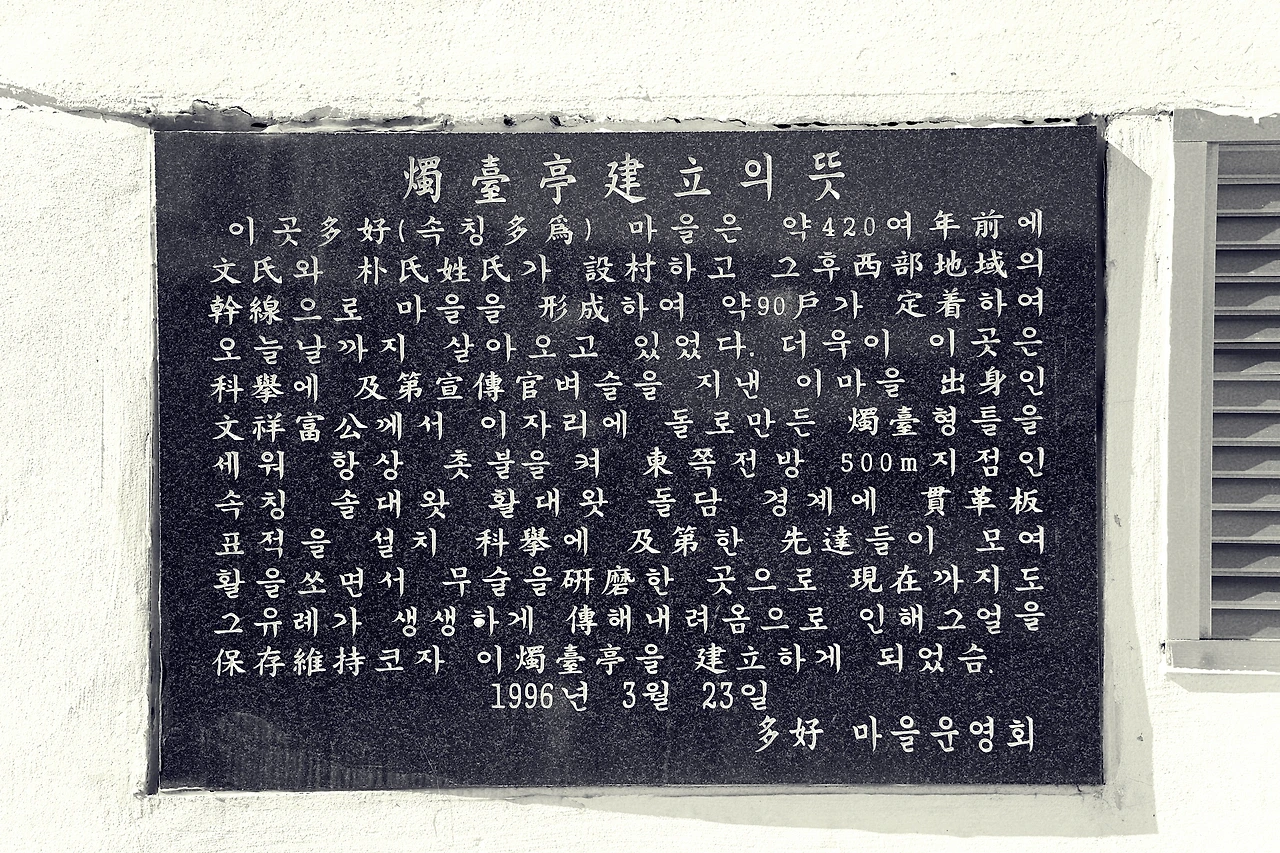 燭臺亭建立의 뜻
이곳 多好(속칭多爲) 마을은 약420여年前에
文氏와 朴氏姓氏가 設村하고 그후西部地域의
幹線으로 마을을 形成하여 약90戶가 定着하여
오늘날까지 살아오고 있었다. 더욱이 이곳은
科擧에 及第宣傳官벼슬을 지낸 이마을 出身인
文祥富公께서 이자리에 돌로만든 燭臺형틀을
세워 항상 촛불을켜 東쪽전방 500m지점인
속칭 솔대왓 활대왓 돌담 경계에 貫革板
표적을 설치 科擧에 及第한 先達들이 모여
활을쏘면서 무술을硏磨한 곳으로 現在까지도
그유례가 생생하게 傳해내려옴으로 인해그얼을
保存維持코자 이燭臺亭을 建立하게 되었슴.
1996년 3월 23일
多好 마을운영회